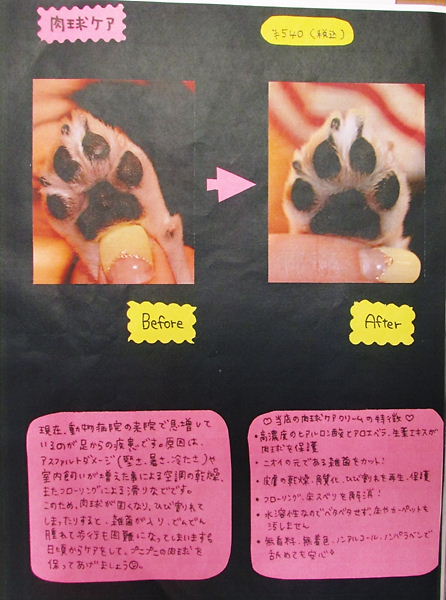 肉球ケア
¥540(税込)
Before
After
現在、動物病院の来院で急増して
いるのが足からの疾患です。原因は、
アスファルトダメージ(堅さ、暑さ、冷たさ)や
室内飼いが増えた為による空調の乾燥、
またフローリングによる滑りなどです。
このため、肉球が固くなり、ひび割れて
しまったりすると、雑菌が入り、どんどん
腫れて歩行も困難になってしまいます。
日頃からケアをして、プニプニの肉球を
保ってあげましょう
♡当店の肉球ケアクリームの特徴♡
・高濃度のヒアルロン酸とアロエベラ、生薬エキスが
肉球を保護
・ニオイの元である雑菌をカット!
・皮膚の乾燥、角質化、ひび割れを再生、保護
・フローリング、床スベリを解消!
・水溶性なのでベタベタせず、床やカーペットも
汚しません
・無香料、無着色、ノンアルコール、ノンパラベンで
舐めても安心!